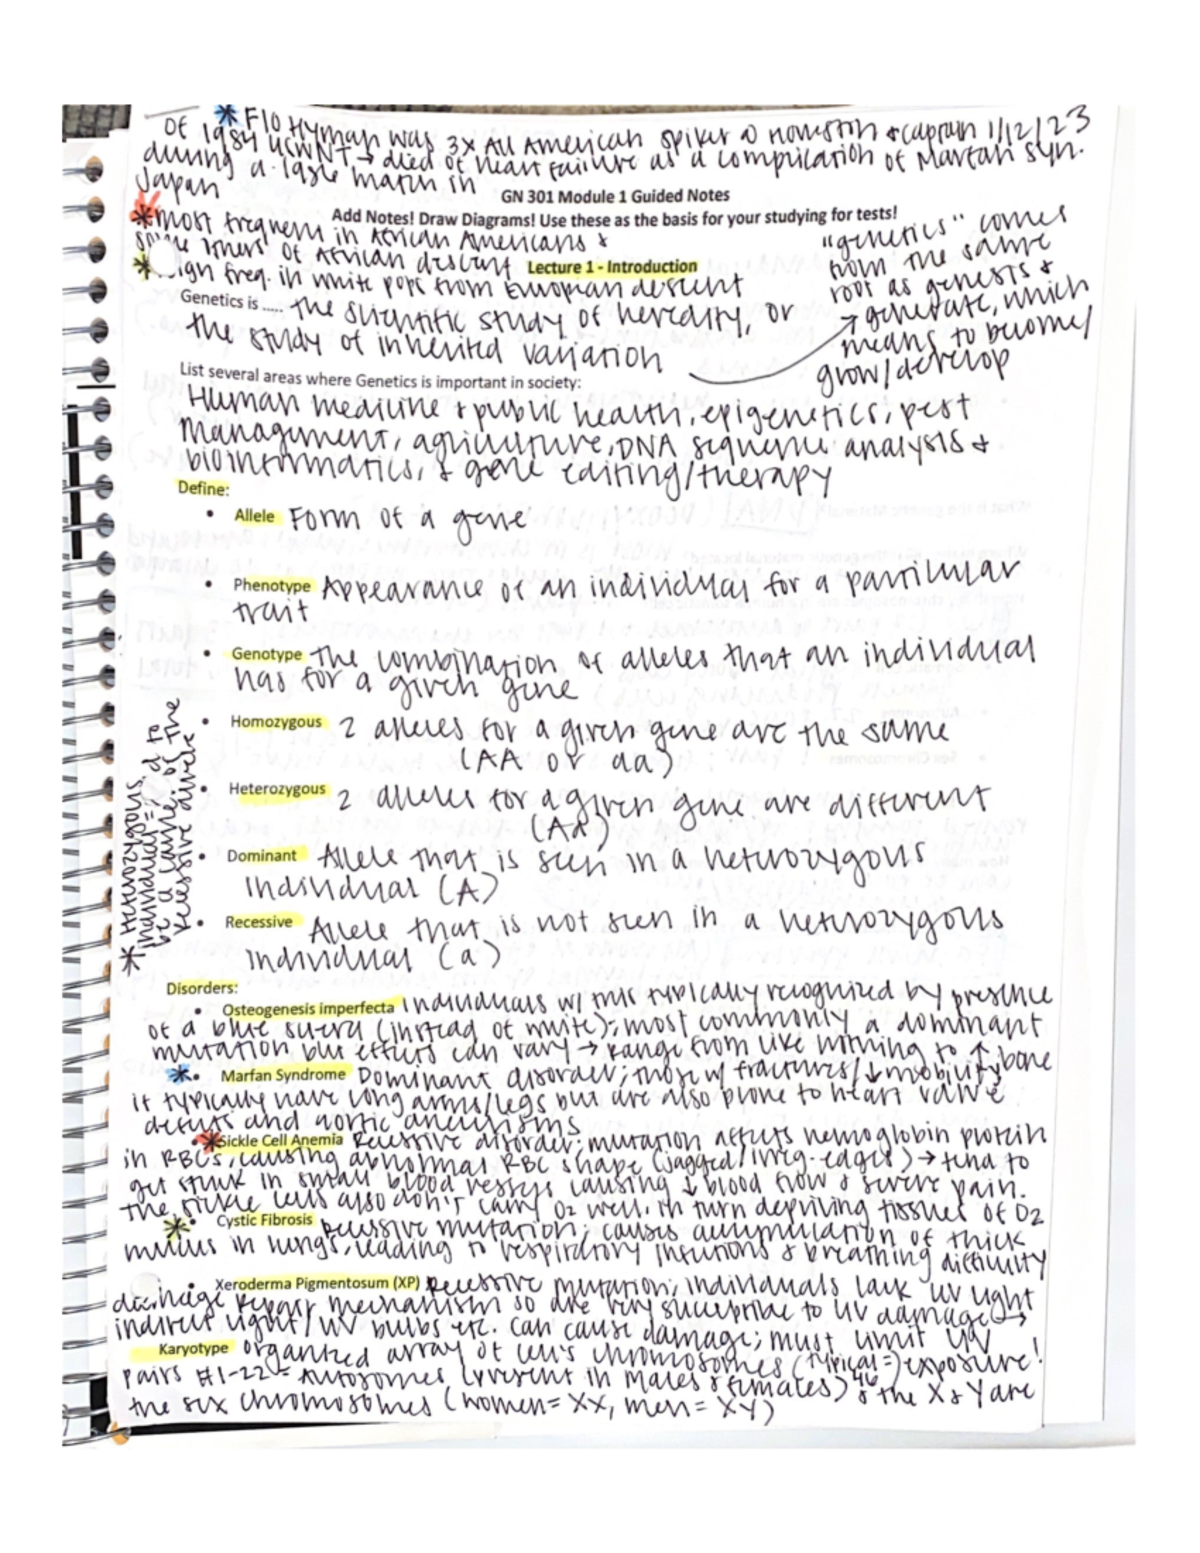 * Flo Hyman was 3x All American spiker @ Houston & captain 1/12/23
of 1984 UCWNT → died of heart failure as a complication of Marfan Syn.
during a 1986 match in
Japan
GN 301 Module 1 Guided Notes
Add Notes! Draw Diagrams! Use these as the basis for your studying for tests!
* most frequent in African Americans &
some others of African descent
* sign freq. in white pops from European descent
Lecture 1 - Introduction
"genetics" comes
from the same
root as genesis &
→ generate, which
means to become/
grow/develop
Genetics is ..... the scientific study of heredity, or
the study of inherited variation
List several areas where Genetics is important in society:
Human medicine + public health, epigenetics, pest
management, agriculture, DNA sequence analysis &
bioinformatics, & gene editing/therapy
Define:
• Allele Form of a gene
• Phenotype Appearance of an individual for a particular
trait
• Genotype The combination of alleles that an individual
has for a given gene
• Homozygous 2 alleles for a given gene are the same
(AA or aa)
• Heterozygous 2 alleles for a given gene are different
(Aa)
• Dominant Allele that is seen in a heterozygous
individual (A)
• Recessive Allele that is not seen in a heterozygous
individual (a)
* Heterozygous
individual =
be a carrier of the
recessive disorder
Disorders:
• Osteogenesis imperfecta Individuals w/ this typically recognized by presence
of a blue sclera (instead of white); most commonly a dominant
mutation but effects can vary → range from like nothing to ↑ bone
fractures/↓ mobility
* • Marfan Syndrome Dominant disorder; those w/
it typically have long arms/legs but are also prone to heart valve
defects and aortic aneurisms
* Sickle Cell Anemia Recessive disorder: mutation affects hemoglobin protein
in RBCs, causing abnormal RBC shape (jagged/irreg. edges) → tend to
get stuck in small blood vessels causing ↓ blood flow & severe pain.
The sickle cells also don't carry O2 well, ith turn depriving tissues of O2
* • Cystic Fibrosis Recessive mutation; causes accumulation of thick
mucus in lungs, leading to respiratory infections & breathing difficulty
• Xeroderma Pigmentosum (XP) Recessive mutation; individuals lack UV light
damage repair mechanism so are very susceptible to UV damage →
indirect light/UV bulbs etc. can cause damage; must limit UV
exposure!
Karyotype organized array of cell's chromosomes (typical = 46)
pairs #1-22 = autosomes (present in males & females) & the X & Y are
the sex chromosomes (women = XX, men = XY)